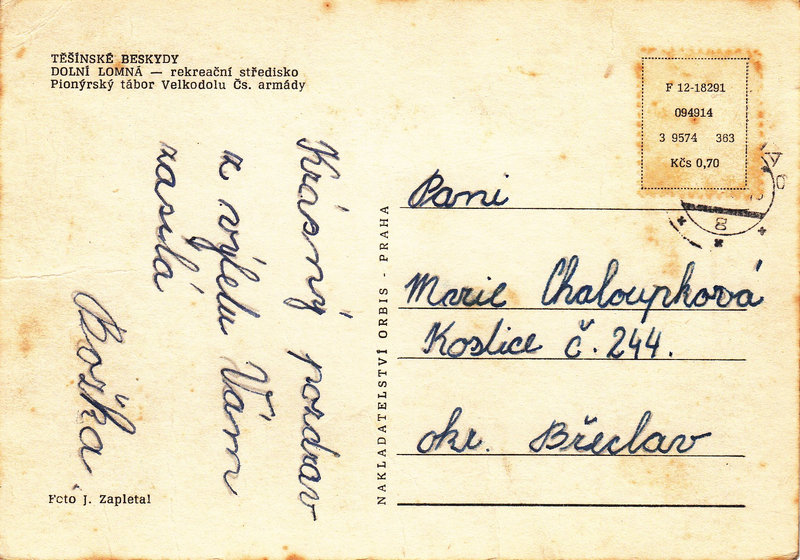 TĚŠÍNSKÉ BESKYDY
DOLNÍ LOMNÁ — rekreační středisko
Pionýrský tábor Velkodolu Čs. armády
Krásný pozdrav
z výletu Vám
zasílá
Boška.
Foto J. Zapletal
NAKLADATELSTVÍ ORBIS - PRAHA
F 12-18291
094914
3 9574 363
Kčs 0,70
8
Paní
Marie Chaloupková
Kostice č. 244.
okr. Břeclav